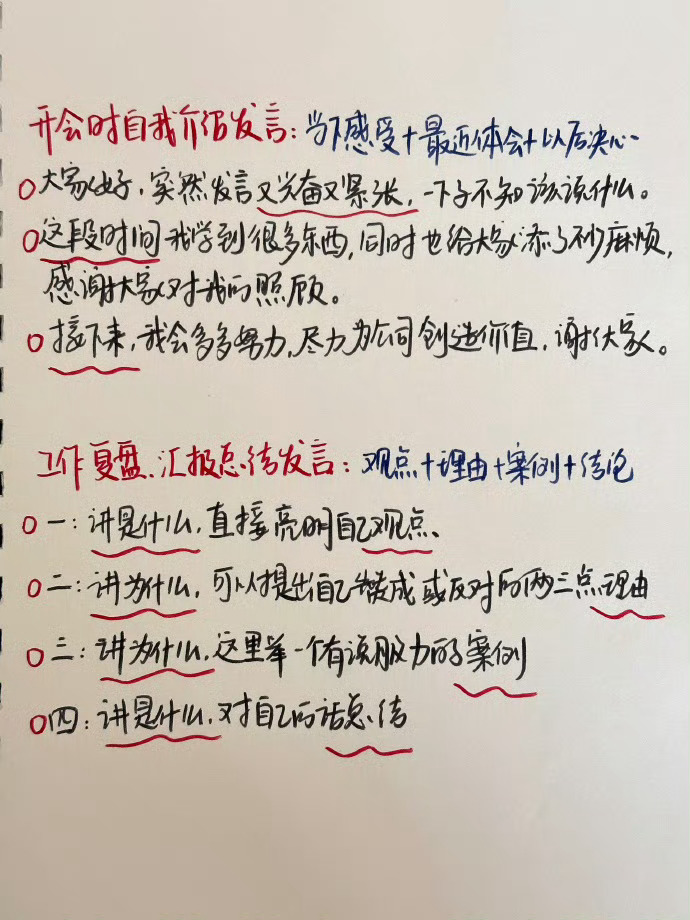 开会时自我介绍发言：当下感受+最近体会+以后决心
大家好，突然发言又兴奋又紧张，一下子不知该说什么。
这段时间我学到很多东西，同时也给大家添了不少麻烦，
感谢大家对我的照顾。
接下来，我会多多努力，尽力为公司创造价值，谢谢大家。
工作复盘、汇报总结发言：观点+理由+案例+结论
一：讲是什么，直接亮明自己观点、
二：讲为什么，可以提出自己赞成或反对的两三点理由
三：讲为什么，这里举一个有说服力的案例
四：讲是什么，对自己的话总结